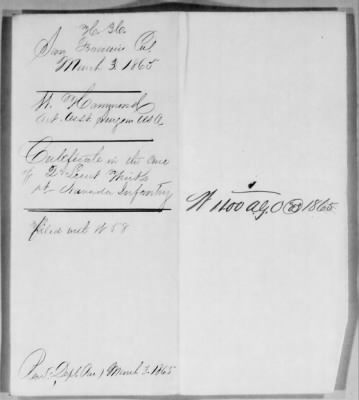 San Francisco Cal
March 3. 1865
W. Hammond
Act. Asst. Surgeon USA
Certificate in the case
of 2d Lieut
1st Nevada Infantry
Filed with W 58
W 1100 A.G.O 1865
Rec'd Dept Pac, March 3. 1865